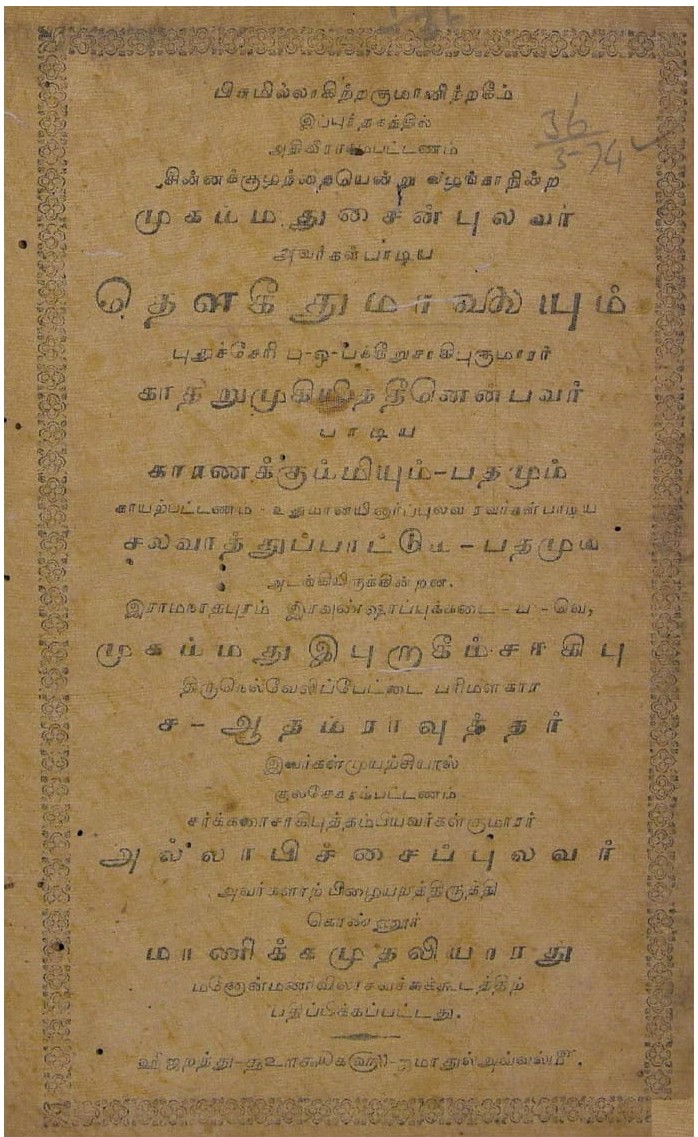 பிசுமில்லாகிற்றகுமானிற்றகீம்
இப்புர்தகத்தில்
அதிவீராமபட்டணம்
சின்னக்குழந்தையென்று வழங்காநின்ற
முகம்மதுசைன்புலவர்
அவர்கள்பாடிய
தௌகீதுமாலையும்
புதுச்சேரி பு-ஒ-பக்கீறுசாகிபுகுமாரர்
காதிறுமுகியித்தீனென்பவர்
பாடிய
காரணக்கும்மியும்-பதமும்
காயற்பட்டணம் - உதுமானயினார்ப்புலவ ரவர்கள்பாடிய
சலவாத்துப்பாட்டும் - பதமும்
அடங்கியிருக்கின்றன.
இராமநாதபுரம் ஷாப்புக்கடை - ப - வெ,
முகம்மதுஇபுறாகீம்சாகிபு
திருநெல்வேலிப்பேட்டை பரிமளகார
ச - ஆதம்ராவுத்தர்
இவர்கள்முயற்சியால்
குலசேகரம்பட்டணம்
சர்க்கரைசாகிபுத்தம்பியவர்கள்குமாரர்
அல்லாபிச்சைப்புலவர்
அவர்களாற் பிழையறத்திருத்தி
கொண்ணூர்
மாணிக்கமுதலியாரது
மனோன்மணிவிலாசவச்சுக்கூடத்திற்
பதிப்பிக்கப்பட்டது.
36
3-74